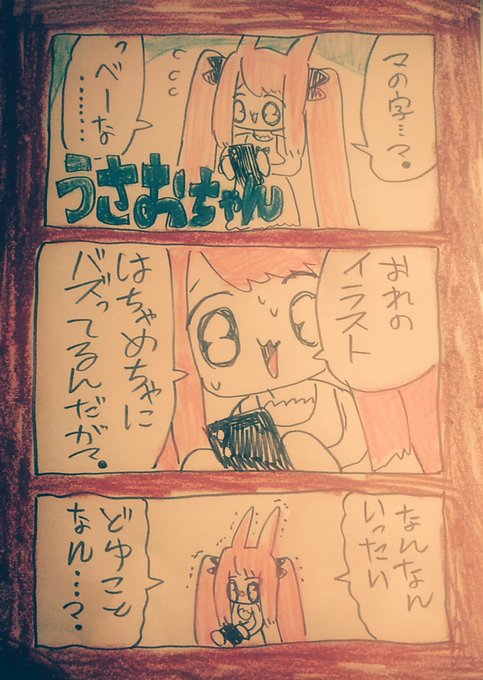 マの字…?
っべーな
………
うさおちゃん
おれの
イラスト
はちゃめちゃに
バズってるんだが?
なんなん
いったい
どゆこと
なん…?